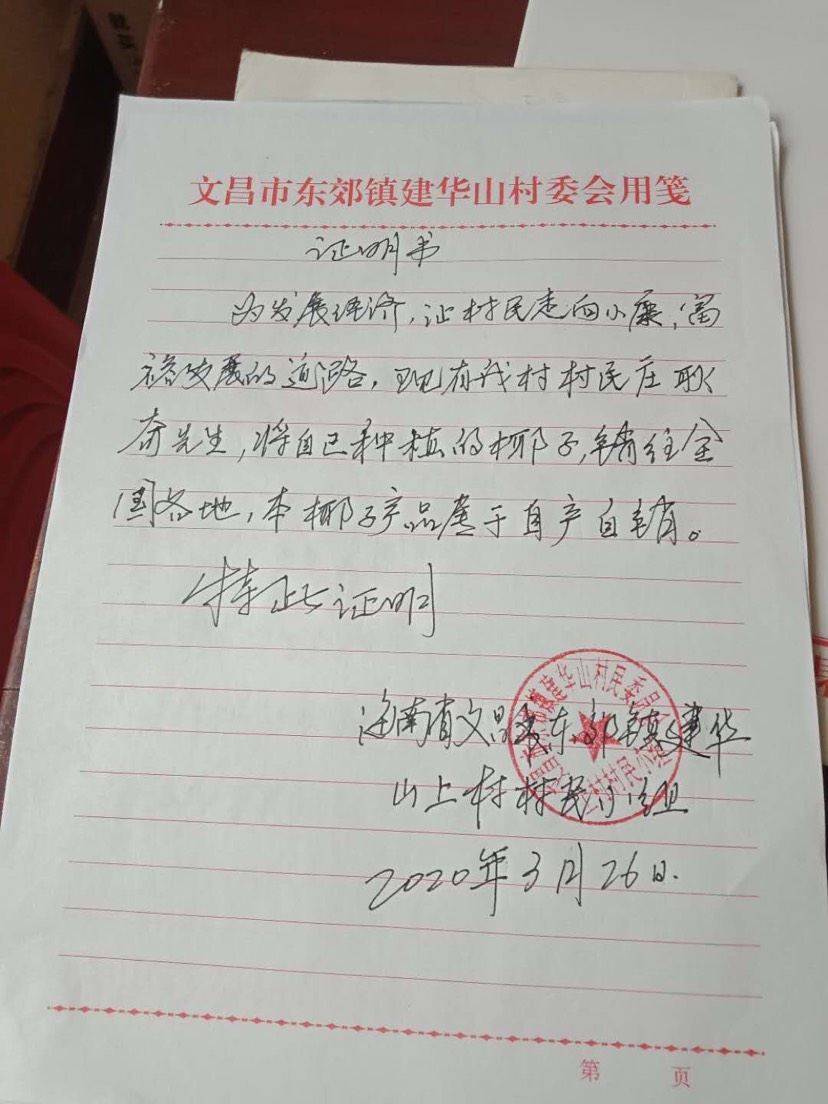 文昌市东郊镇建华山村委会用笺
证明书
为发展经济,让村民走向小康,富
裕发展的道路,现有我村村民庄耿
奋先生,将自己种植的椰子,销往全
国各地,本椰子产品属于自产自销。
特此证明
海南省文昌市东郊镇建华
山上村村民小组
2020年3月26日.
建华山村民委员会
村村民小组
第 页